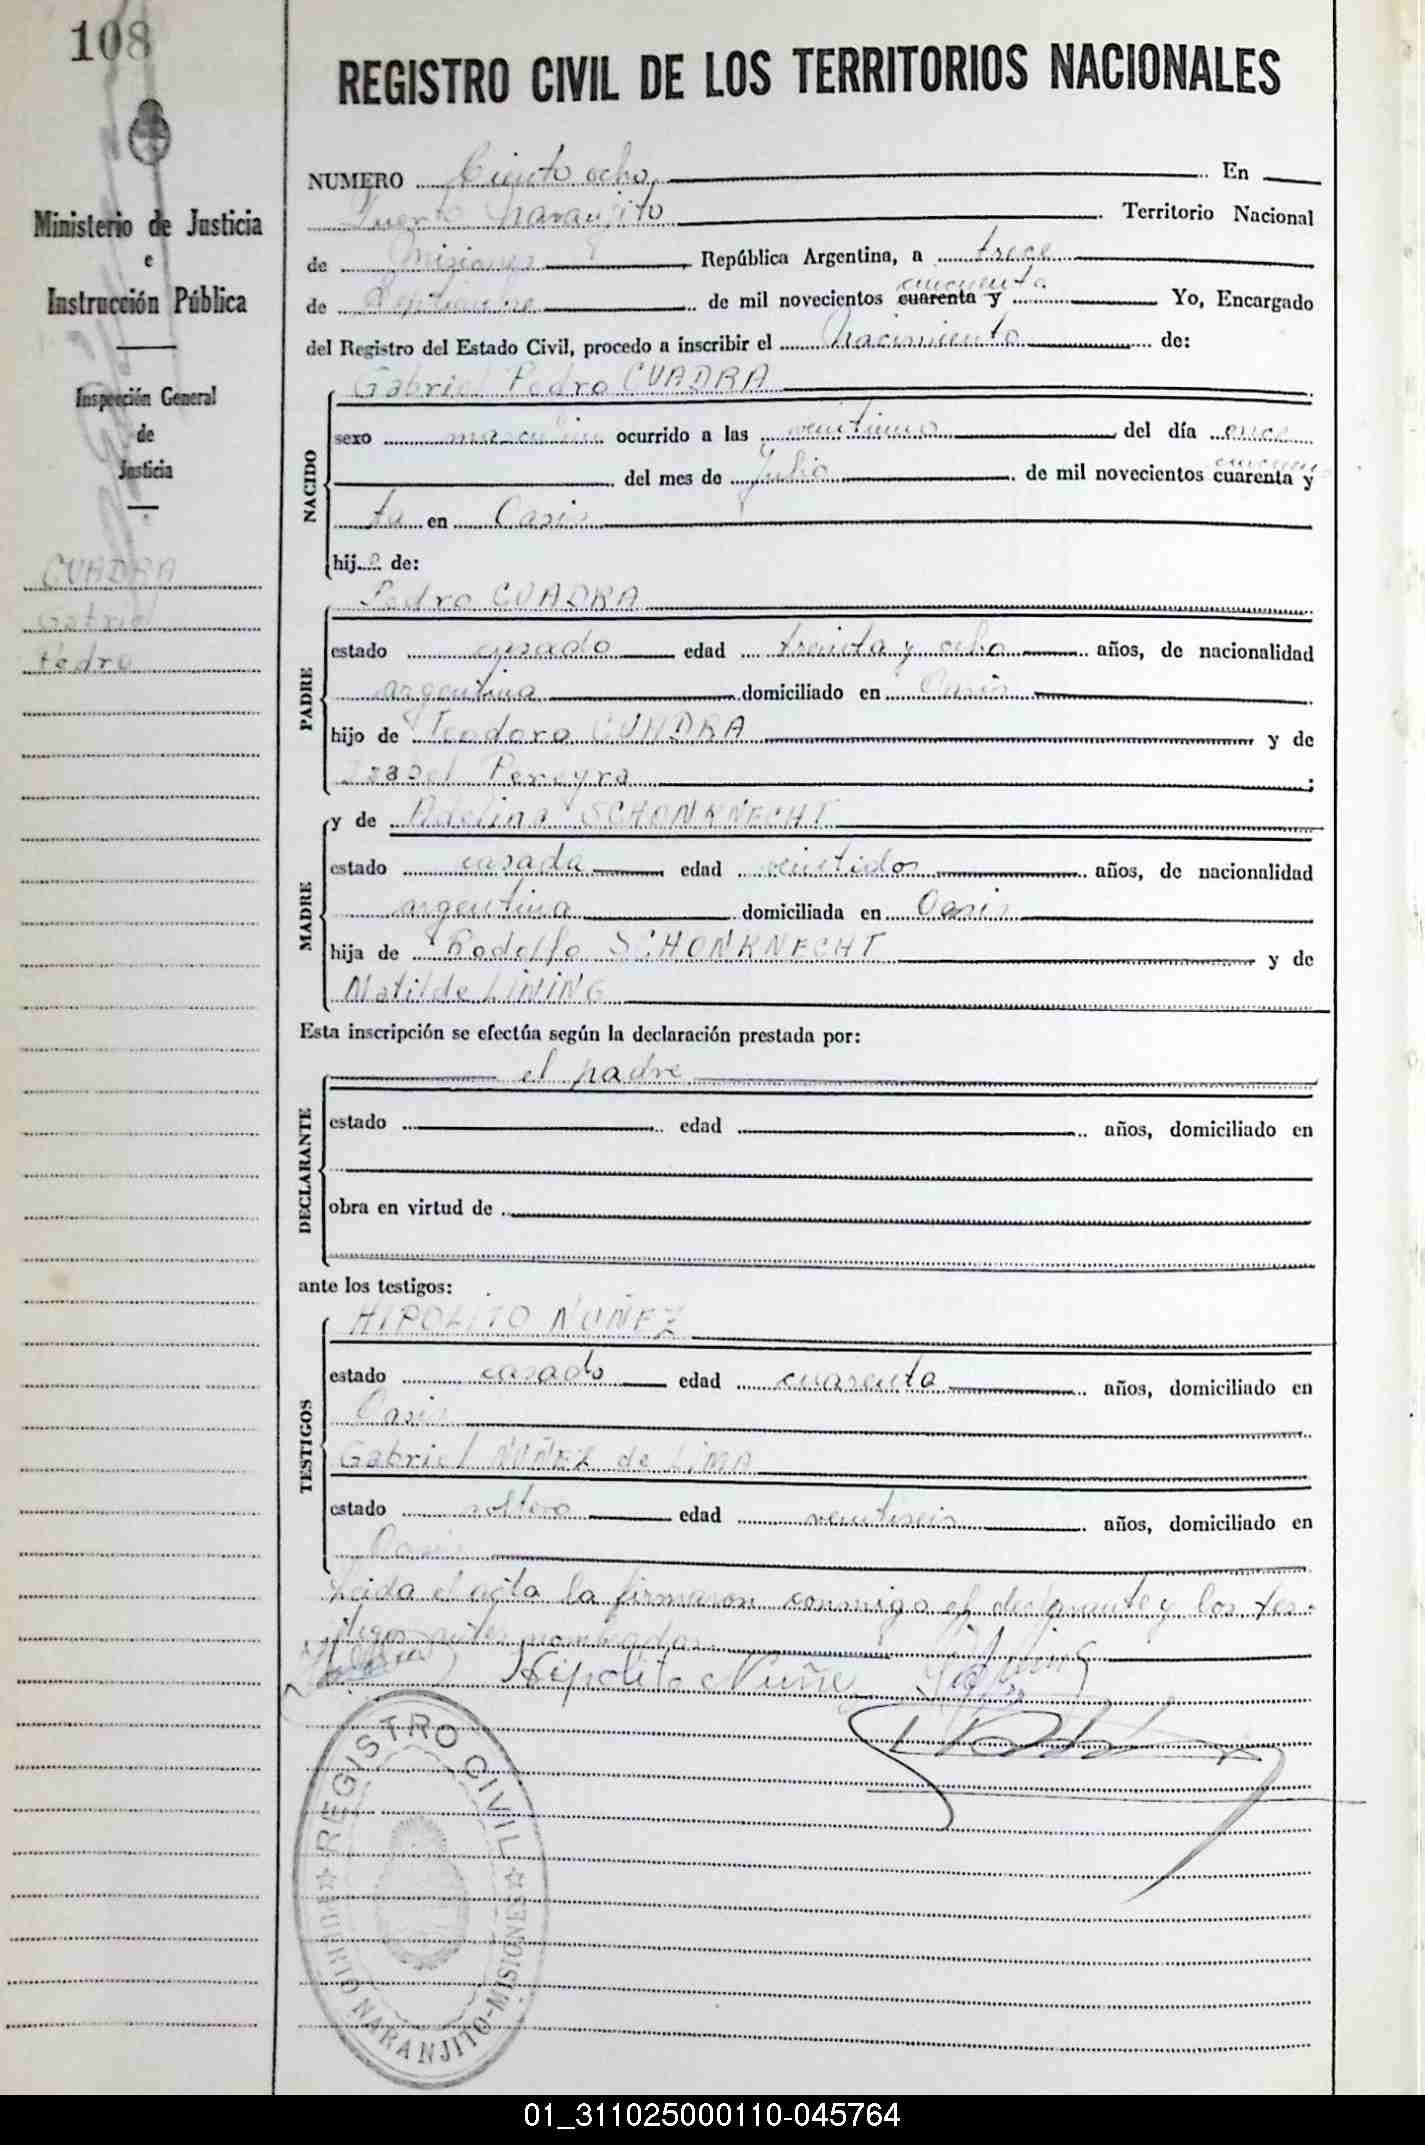 108
REGISTRO CIVIL DE LOS TERRITORIOS NACIONALES
Ministerio de Justicia
e
Instrucción Pública
Inspección General
de
Justicia
CUADRA
Gabriel
Pedro
NUMERO Ciento ocho En
Puerto Naranjito Territorio Nacional
de Misiones República Argentina, a trece
cincuenta
de Septiembre de mil novecientos cuarenta y Yo, Encargado
del Registro del Estado Civil, procedo a inscribir el Nacimiento de:
NACIDO
Gabriel Pedro CUADRA
sexo masculino ocurrido a las del día once
del mes de Julio de mil novecientos cuarenta y
ta en Oasis
hijo de:
PADRE
Pedro CUADRA
estado casado edad treinta y ocho años, de nacionalidad
argentina domiciliado en Oasis
hijo de Teodoro CUADRA y de
Isabel Pereyra ;
MADRE
y de Adelina SCHONKNECHT
estado casada edad veintidos años, de nacionalidad
argentina domiciliada en Oasis
hija de Rodolfo SCHONKNECHT y de
Matilde LINING
Esta inscripción se efectúa según la declaración prestada por:
DECLARANTE
el padre
estado edad años, domiciliado en
obra en virtud de
ante los testigos:
TESTIGOS
HIPOLITO NUÑEZ
estado casado edad cuarenta años, domiciliado en
Oasis
Gabriel NUÑEZ de LIMA
estado soltero edad veintiseis años, domiciliado en
Oasis
Leida el acta la firmaron conmigo el y los tes-
tigos antes nombrados
Hipolito Nuñez
REGISTRO CIVIL
PUERTO NARANJITO-MISIONES
01_311025000110-045764